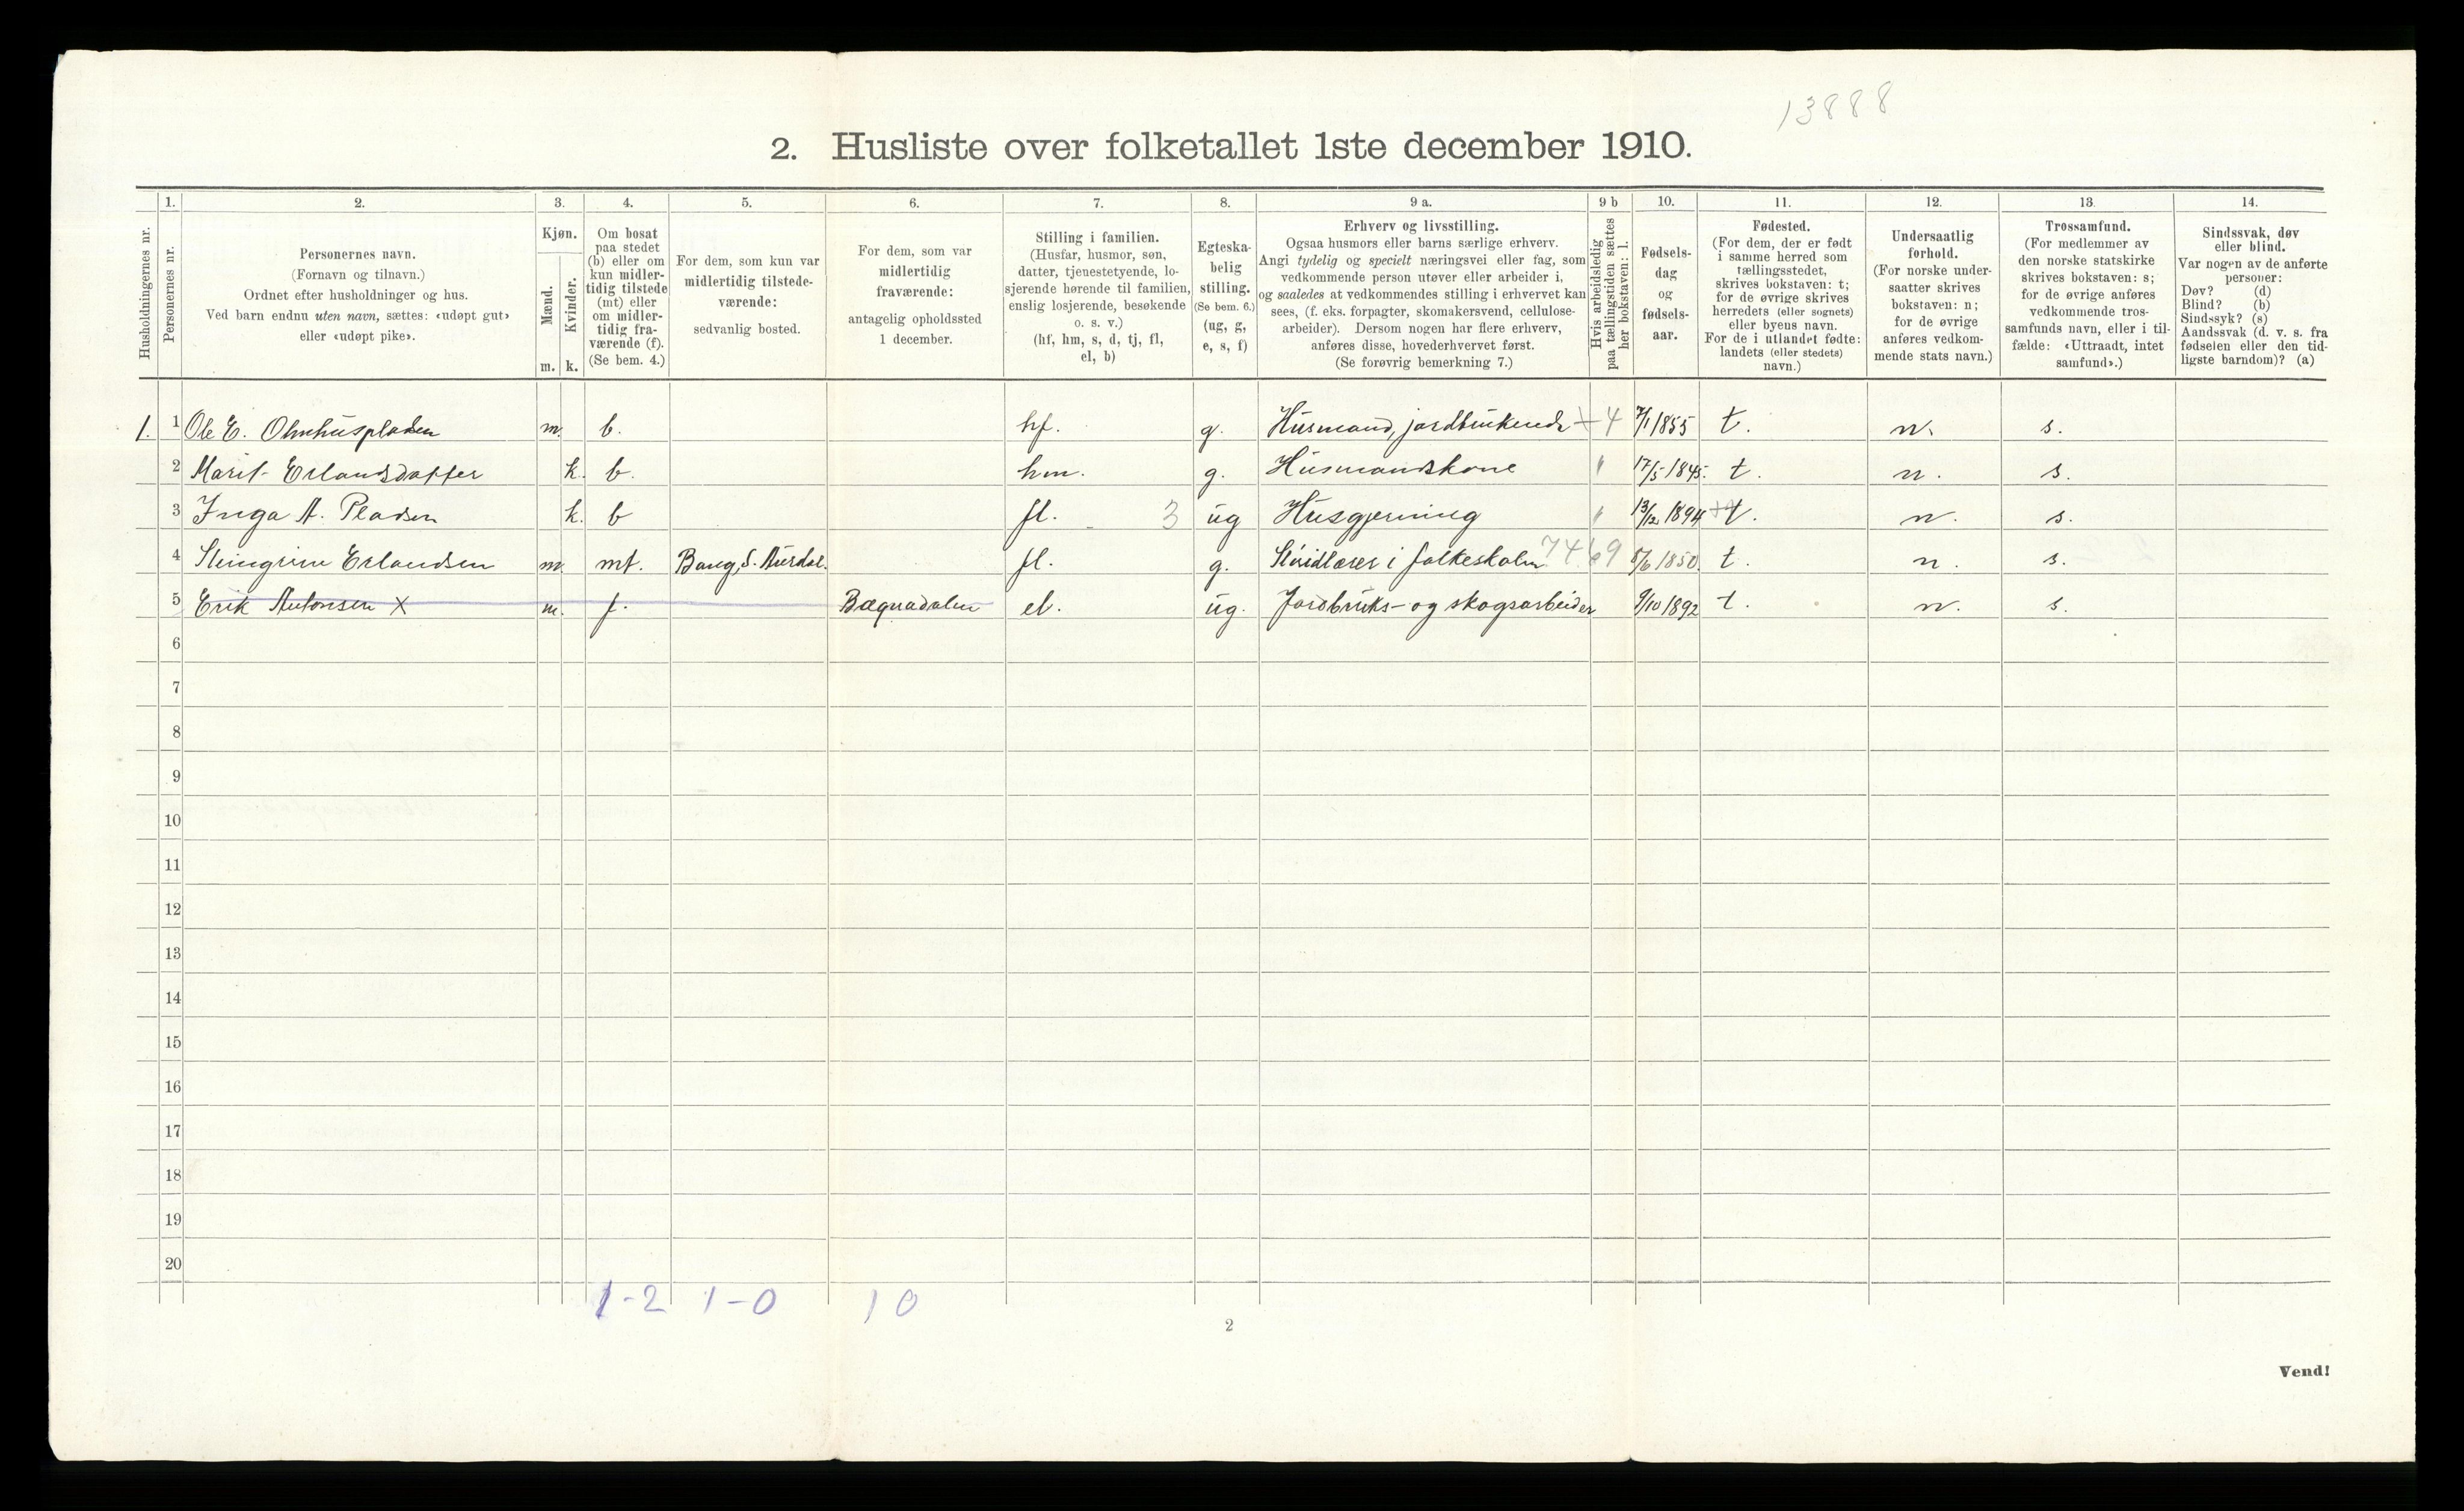 13888
2. Husliste over folketallet 1ste december 1910.
Husholdningernes nr.
1. Personernes nr.
2. Personernes navn.
(Fornavn og tilnavn.)
Ordnet efter husholdninger og hus.
Ved barn endnu uten navn, sættes: «udøpt gut»
eller «udøpt pike».
3. Kjøn.
Mænd. m.
Kvinder. k.
4. Om bosat
paa stedet
(b) eller om
kun midler-
tidig tilstede
(mt) eller
om midler-
tidig fra-
værende (f).
(Se bem. 4.)
5. For dem, som kun var
midlertidig tilstede-
værende:
sedvanlig bosted.
6. For dem, som var
midlertidig
fraværende:
antagelig opholdssted
1 december.
7. Stilling i familien.
(Husfar, husmor, søn,
datter, tjenestetyende, lo-
sjerende hørende til familien,
enslig losjerende, besøkende
o. s. v.)
(hf, hm, s, d, tj, fl,
el, b)
8. Egteska-
belig
stilling.
(Se bem. 6.)
(ug, g,
e, s, f)
9 a. Erhverv og livsstilling.
Ogsaa husmors eller barns særlige erhverv.
Angi tydelig og specielt næringsvei eller fag, som
vedkommende person utøver eller arbeider i,
og saaledes at vedkommendes stilling i erhvervet kan
sees, (f. eks. forpagter, skomakersvend, cellulose-
arbeider). Dersom nogen har flere erhverv,
anføres disse, hovederhvervet først.
(Se forøvrig bemerkning 7.)
9 b Hvis arbeidsledig
paa tællingstiden sættes
her bokstaven: l.
10. Fødsels-
dag
og
fødsels-
aar.
11. Fødested.
(For dem, der er født
i samme herred som
tællingsstedet,
skrives bokstaven: t;
for de øvrige skrives
herredets (eller sognets)
eller byens navn.
For de i utlandet fødte:
landets (eller stedets)
navn.)
12. Undersaatlig
forhold.
(For norske under-
saatter skrives
bokstaven: n;
for de øvrige
anføres vedkom-
mende stats navn.)
13. Trossamfund.
(For medlemmer av
den norske statskirke
skrives bokstaven: s;
for de øvrige anføres
vedkommende tros-
samfunds navn, eller i til-
fælde: «Uttraadt, intet
samfund».)
14. Sindssvak, døv
eller blind.
Var nogen av de anførte
personer:
Døv? (d)
Blind? (b)
Sindssyk? (s)
Aandssvak (d. v. s. fra
fødselen eller den tid-
ligste barndom)? (a)
1. 1 Ole E. Olmhuspladsen m. b. hf. g. Husmand, jordbrukende + 4 7/1 1855 t. n. s.
2 Marit Erlandsdatter k. b. hm. g. Husmandskone 17/5 1845. t. n. s.
3 Inga A. Pladsen k. b fl. 3 ug Husgjerning 13/12 1894 t. n. s.
4 Steingrim Erlandsen m. mt. Bang, S. Aurdal. fl. g. Sløidlærer i folkeskolen 7469 /6 1850. t. n. s.
5 Erik Antonsen X m. f. Bægnadalen el. ug. Jordbruks- og skogsarbeider 9/10 1892 t. n. s.
6
7
8
9
10
11
12
13
14
15
16
17
18
19
20
1-2 1-0 1 0
2
Vend!